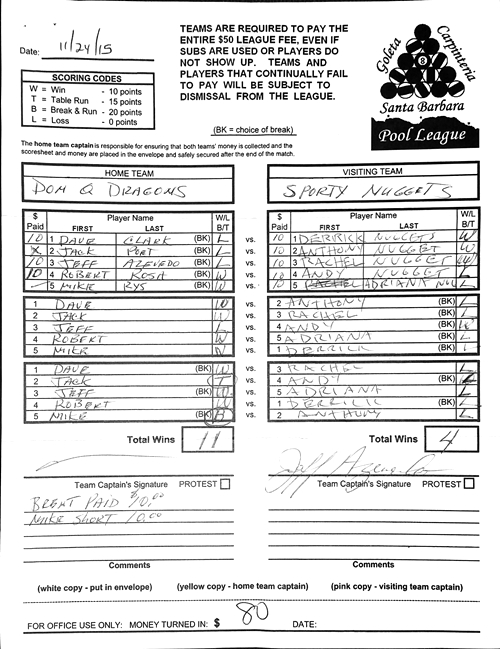 Date: 11/24/15
TEAMS ARE REQUIRED TO PAY THE
ENTIRE $50 LEAGUE FEE, EVEN IF
SUBS ARE USED OR PLAYERS DO
NOT SHOW UP. TEAMS AND
PLAYERS THAT CONTINUALLY FAIL
TO PAY WILL BE SUBJECT TO
DISMISSAL FROM THE LEAGUE.
(BK = choice of break)
SCORING CODES
W = Win - 10 points
T = Table Run - 15 points
B = Break & Run - 20 points
L = Loss - 0 points
Goleta
Carpinteria
8
Santa Barbara
Pool League
The home team captain is responsible for ensuring that both teams' money is collected and the
scoresheet and money are placed in the envelope and safely secured after the end of the match.
HOME TEAM
DOM Q DRAGONS
$ Paid Player Name FIRST LAST W/L B/T
10 1 DAVE CLARK (BK) L
X 2 JACK PORT (BK) L
10 3 JEFF AZEVEDO (BK) L
10 4 ROBERT ROSA (BK) W
5 MIKE RYS (BK) W
vs.
vs.
vs.
vs.
vs.
1 DAVE W
2 JACK W
3 JEFF L
4 ROBERT W
5 MIKE
vs.
vs.
vs.
vs.
vs.
1 DAVE (BK) W
2 JACK T
3 JEFF (BK) W
4 ROBERT W
5 MIKE (BK)
vs.
vs.
vs.
vs.
vs.
Total Wins 11
Team Captain's Signature PROTEST
BRENT PAID $10.00
MIKE SHORT 10.00
Comments
VISITING TEAM
SPORTY NUGGETS
$ Paid Player Name FIRST LAST W/L B/T
10 1 DERRICK NUGGETS W
10 2 ANTHONY NUGGET W
10 3 RACHEL NUGGET W
10 4 ANDY NUGGET L
10 5 ADRIANA L
2 ANTHONY (BK) L
3 RACHEL (BK) L
4 ANDY (BK) W
5 ADRIANA (BK) L
1 DERRICK (BK) L
3 RACHEL L
4 ANDY (BK) L
5 ADRIANA L
1 DERRICK (BK) L
2 ANTHONY L
Total Wins 4
Team Captain's Signature PROTEST
Comments
(white copy - put in envelope) (yellow copy - home team captain) (pink copy - visiting team captain)
FOR OFFICE USE ONLY: MONEY TURNED IN: $ 80 DATE: